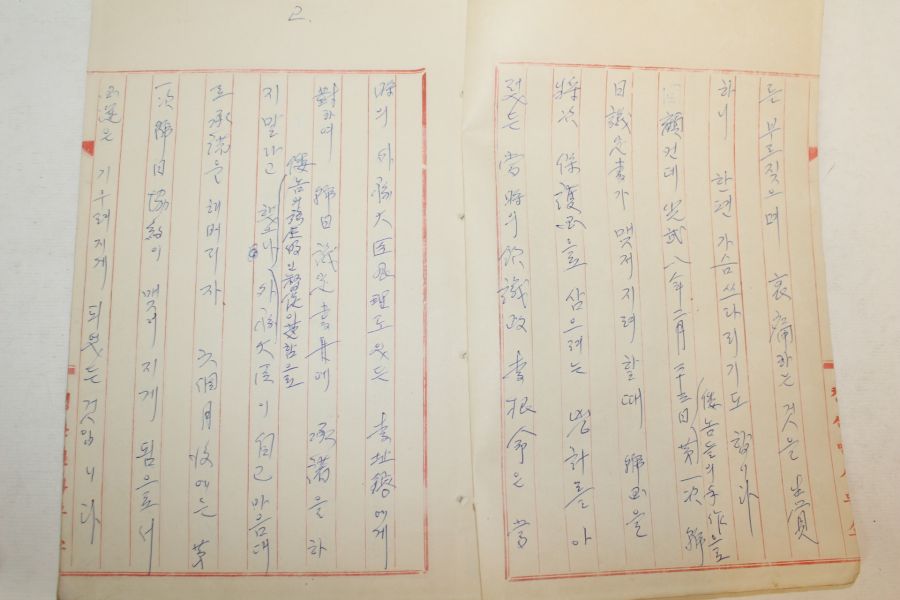 2.
는 부르직으며 哀痛하는 것을 出頁
하니 한편 가슴쓰라리기도 합니다
顧컨데 光武八年二月二十三日 第一次 韓
倭놈들의 手作으로
日議定書가 맺저지려할때 韓国을
将次 保護国으로 삼으려는 兇計를 아
렀는 当時의 議政 李根命은 当
時의 外務大臣署理로 있는 李址鎔에게
對하여 韓日議定書에 承諾을 하
지말라고 했으나 外務大臣이 自己마음대
倭놈의
로 承諾을 해버리자 六個月後에는 第
一次韓日協約이 맺어지게 됨으로서
国運은 기우러지게 되였든 것입니다